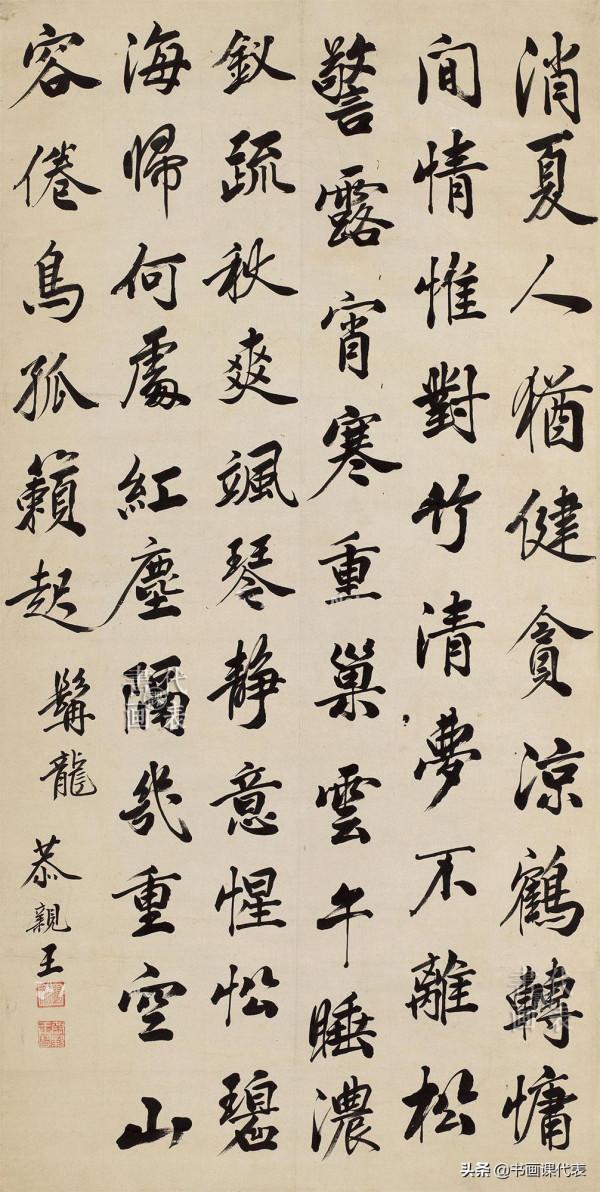 消夏人猶健貪涼鶴轉慵
間情惟對竹清夢不離松
警露宵寒重巢雲午睡濃
釵疏秋爽颯琴静意惺忪碧
海歸何處紅塵隔幾重空山
容倦鳥孤籟起
髯龍 恭親王
头条 @书画课代表